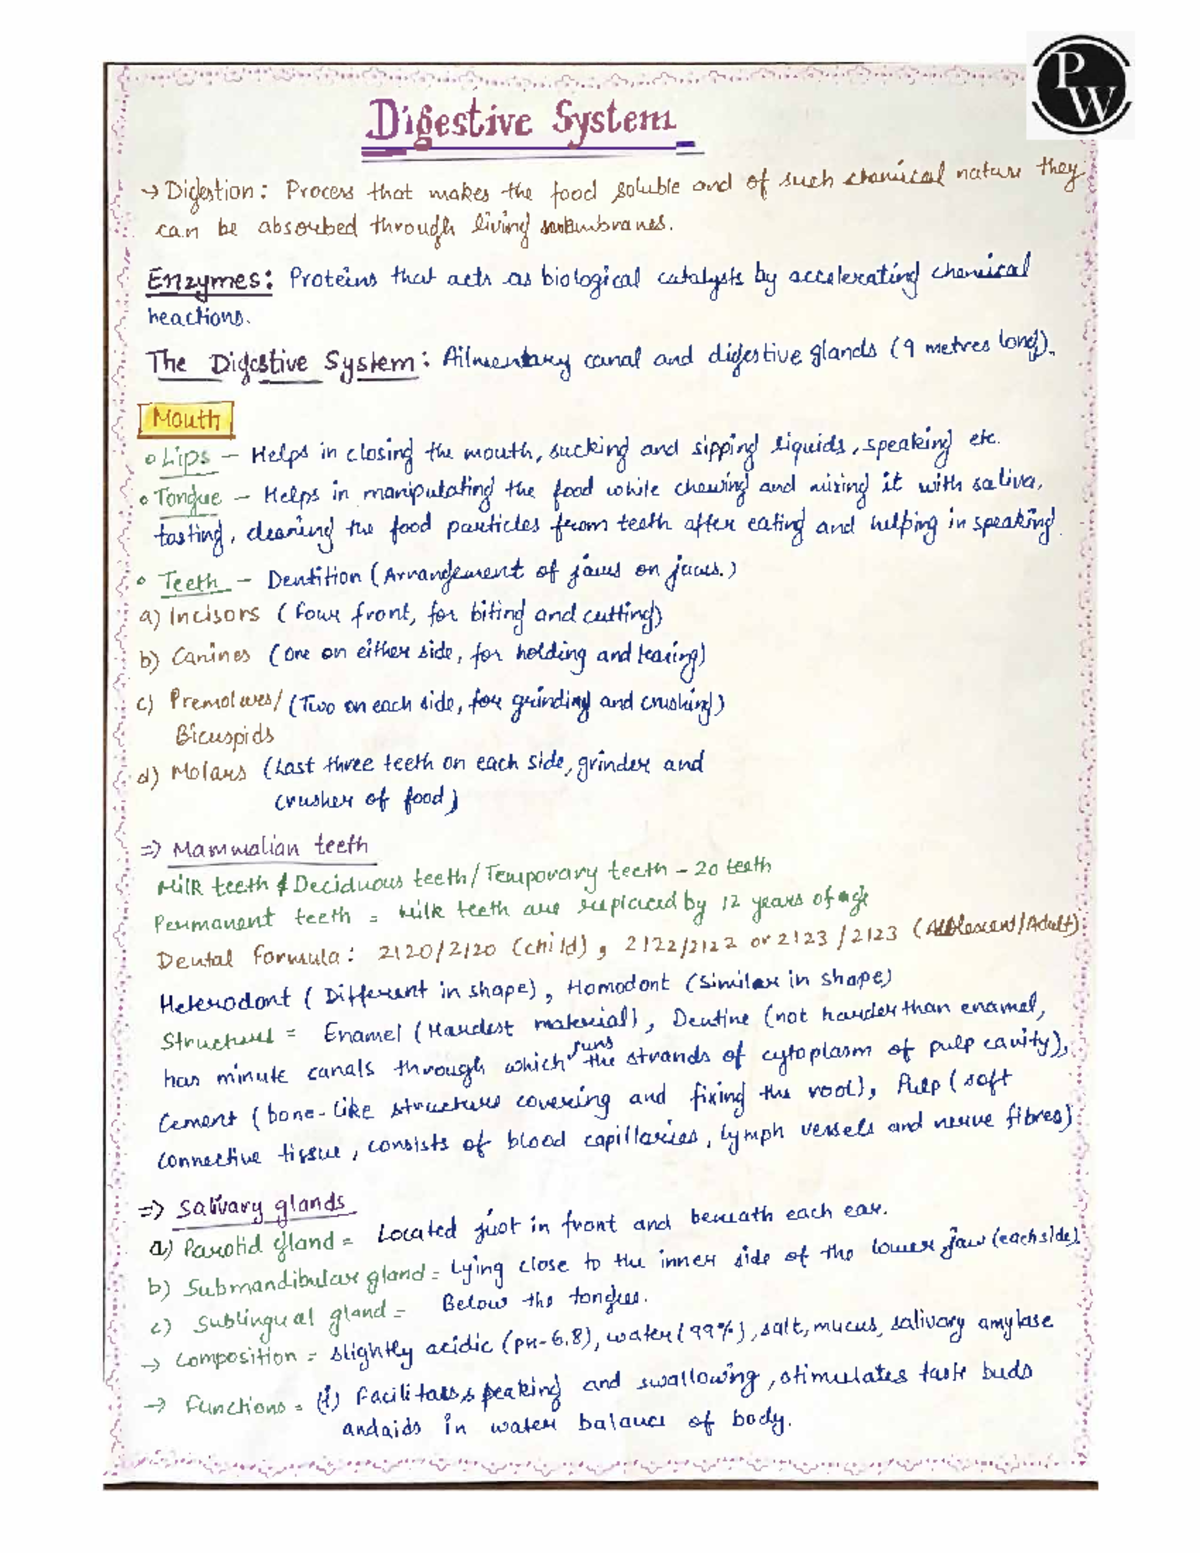 P
W
Digestive System
→ Digestion: Process that makes the food soluble and of such chemical nature they
can be absorbed through living membranes.
Enzymes: Proteins that acts as biological catalysts by accelerating chemical
reactions.
The Digestive System: Ailmentary canal and digestive glands (9 metres long).
Mouth
o Lips – Helps in closing the mouth, sucking and sipping liquids, speaking etc.
o Tongue – Helps in manipulating the food while chewing and mixing it with saliva,
tasting, cleaning the food particles from teeth after eating and helping in speaking.
o Teeth – Dentition (Arrangement of jaws on jaws.)
a) Incisors (four front, for biting and cutting)
b) Canines (one on either side, for holding and tearing)
c) Premolars/ (Two on each side, for grinding and crushing)
Bicuspids
d) Molars (Last three teeth on each side, grinder and
crusher of food)
⇒ Mammalian teeth
Milk teeth & Deciduous teeth/Temporary teeth – 20 teeth
Permanent teeth = Milk teeth are replaced by 12 years of age
Dental Formula: 2120/2120 (child), 2122/2122 or 2123/2123 (Adolescent/Adult)
Heterodont (Different in shape), Homodont (Similar in shape)
Structure = Enamel (Hardest material), Dentine (not harder than enamel,
has minute canals through which runs the strands of cytoplasm of pulp cavity),
Cement (bone-like structure covering and fixing the root), Pulp (soft
connective tissue, consists of blood capillaries, lymph vessels and nerve fibres)
⇒ Salivary glands
a) Parotid gland = Located just in front and beneath each ear.
b) Submandibular gland = Lying close to the inner side of the lower jaw (each side)
c) Sublingual gland = Below the tongue.
→ Composition = slightly acidic (pH-6.8), water (99%), salt, mucus, salivary amylase
→ Functions = (i) Facilitates speaking and swallowing, stimulates taste buds
and aids in water balance of body.